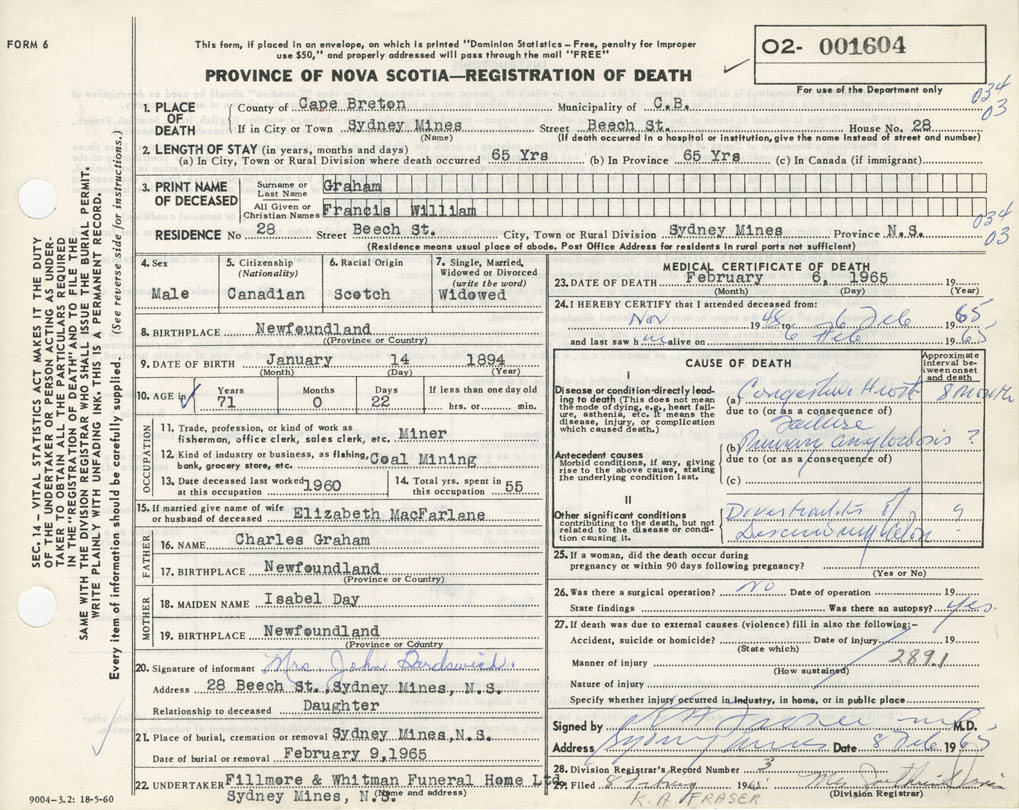 FORM 6
This form, if placed in an envelope, on which is printed "Dominion Statistics – Free, penalty for improper
use $50," and properly addressed will pass through the mail "FREE"
PROVINCE OF NOVA SCOTIA—REGISTRATION OF DEATH
O2- 001604
For use of the Department only
034
03
1. PLACE OF DEATH
County of Cape Breton Municipality of C.B.
If in City or Town Sydney Mines Street Beech St. House No. 28
(Name) (If death occurred in a hospital or institution, give the name instead of street and number)
2. LENGTH OF STAY (in years, months and days)
(a) In City, Town or Rural Division where death occurred 65 Yrs (b) In Province 65 Yrs (c) In Canada (if immigrant)
3. PRINT NAME OF DECEASED
Surname or Last Name Graham
All Given or Christian Names Francis William
034
03
RESIDENCE No 28 Street Beech St. City, Town or Rural Division Sydney Mines Province N.S.
(Residence means usual place of abode. Post Office Address for residents in rural parts not sufficient)
4. Sex
Male
5. Citizenship
(Nationality)
Canadian
6. Racial Origin
Scotch
7. Single, Married,
Widowed or Divorced
(write the word)
Widowed
8. BIRTHPLACE Newfoundland
(Province or Country)
9. DATE OF BIRTH January 14 1894
(Month) (Day) (Year)
10. AGE in
Years 71
Months 0
Days 22
If less than one day old
hrs. or min.
OCCUPATION
11. Trade, profession, or kind of work as
fisherman, office clerk, sales clerk, etc. Miner
12. Kind of industry or business, as fishing,
bank, grocery store, etc. Coal Mining
13. Date deceased last worked
at this occupation 1960
14. Total yrs. spent in
this occupation 55
15. If married give name of wife
or husband of deceased Elizabeth MacFarlane
FATHER
16. NAME Charles Graham
17. BIRTHPLACE Newfoundland
(Province or Country)
MOTHER
18. MAIDEN NAME Isabel Day
19. BIRTHPLACE Newfoundland
(Province or Country
20. Signature of informant Mrs. John
Address 28 Beech St., Sydney Mines, N.S.
Relationship to deceased Daughter
21. Place of burial, cremation or removal Sydney Mines, N.S.
Date of burial or removal February 9,1965
22. UNDERTAKER Fillmore & Whitman Funeral Home Ltd.
Sydney Mines, N.S.
(Name and address)
MEDICAL CERTIFICATE OF DEATH
23. DATE OF DEATH February 6, 1965 19
(Month) (Day) (Year)
24. I HEREBY CERTIFY that I attended deceased from:
Nov 1948 to 6 Feb 1965
and last saw him alive on 6 Feb 1965
CAUSE OF DEATH
Approximate
interval between onset
and death
I
Disease or condition directly leading to death (This does not mean
the mode of dying, e.g., heart failure, asthenia, etc. It means the
disease, injury, or complication
which caused death.)
(a) Congestive Heart 8 month
due to (or as a consequence of)
Failure
(b) Primary amyloidosis ?
due to (or as a consequence of)
(c)
Antecedent causes
Morbid conditions, if any, giving
rise to the above cause, stating
the underlying condition last.
II
Other significant conditions
contributing to the death, but not
related to the disease or condition causing it.
of ?
Descending colon
25. If a woman, did the death occur during
pregnancy or within 90 days following pregnancy?
(Yes or No)
26. Was there a surgical operation? No Date of operation 19
State findings Was there an autopsy? yes.
27. If death was due to external causes (violence) fill in also the following:–
Accident, suicide or homicide? Date of injury 19
(State which)
Manner of injury 289.1
(How sustained)
Nature of injury
Specify whether injury occurred in industry, in home, or in public place
Signed by M.D.
Address Sydney Mines Date 8 Feb 1965
28. Division Registrar's Record Number 3
29. Filed 8 196
K. A. FRASER
(Division Registrar)
SEC. 14 – VITAL STATISTICS ACT MAKES IT THE DUTY
OF THE UNDERTAKER OR PERSON ACTING AS UNDERTAKER TO OBTAIN ALL THE PARTICULARS REQUIRED
IN THE "REGISTRATION OF DEATH" AND TO FILE THE
SAME WITH THE DIVISION REGISTRAR WHO SHALL ISSUE THE BURIAL PERMIT.
WRITE PLAINLY WITH UNFADING INK. THIS IS A PERMANENT RECORD.
Every item of information should be carefully supplied. (See reverse side for instructions.)
9004–3.2: 18-5-60